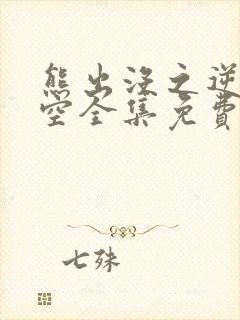 熊出没之逆
空全集免费
七殊